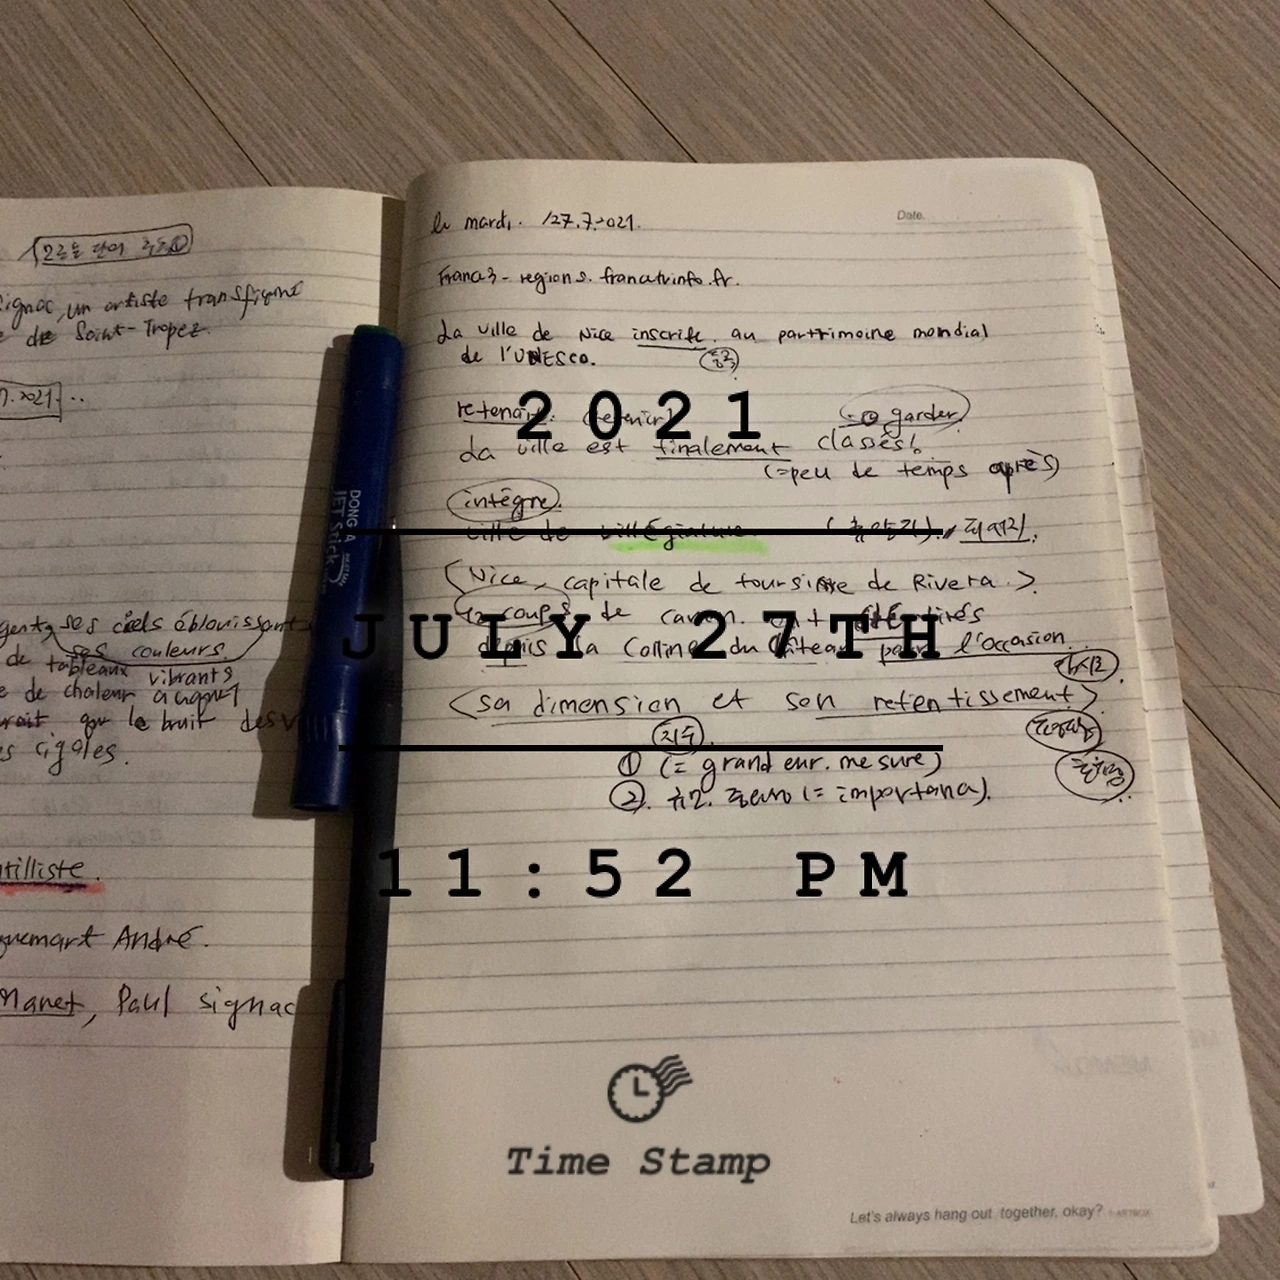 모르는 단어 주도①
Signac, un artiste transfigure
de Saint-Tropez.
7.2021
ses ciels éblouissant
ses couleurs
de tableaux vibrants
de chaleur auquel
que le bruit des
cigales.
tilliste.
quemart André.
Manet, Paul Signac
le mardi. /27.7.2021.
France3-regions.francetvinfo.fr.
La ville de Nice inscrite au parttrimoine mondial
de l'UNESCO.
retenait. (retenir) garder
La ville est finalement classés!
(=peu de temps après)
intègre.
ville de villégiature (휴양지). 피서지.
<Nice, capitale de toursisme de Rivera.>
12 coups de canon ont été tirés
depuis la Colline du Château pour l'occasion.
<sa dimension et son retentissement>
치수
① (= grandeur. mesure)
② 규모. 중요성 (= importance).
2021
JULY 27TH
11:52 PM
Time Stamp
Date.
Let's always hang out together, okay?
ARTBOX
DONG-A
JET Stick